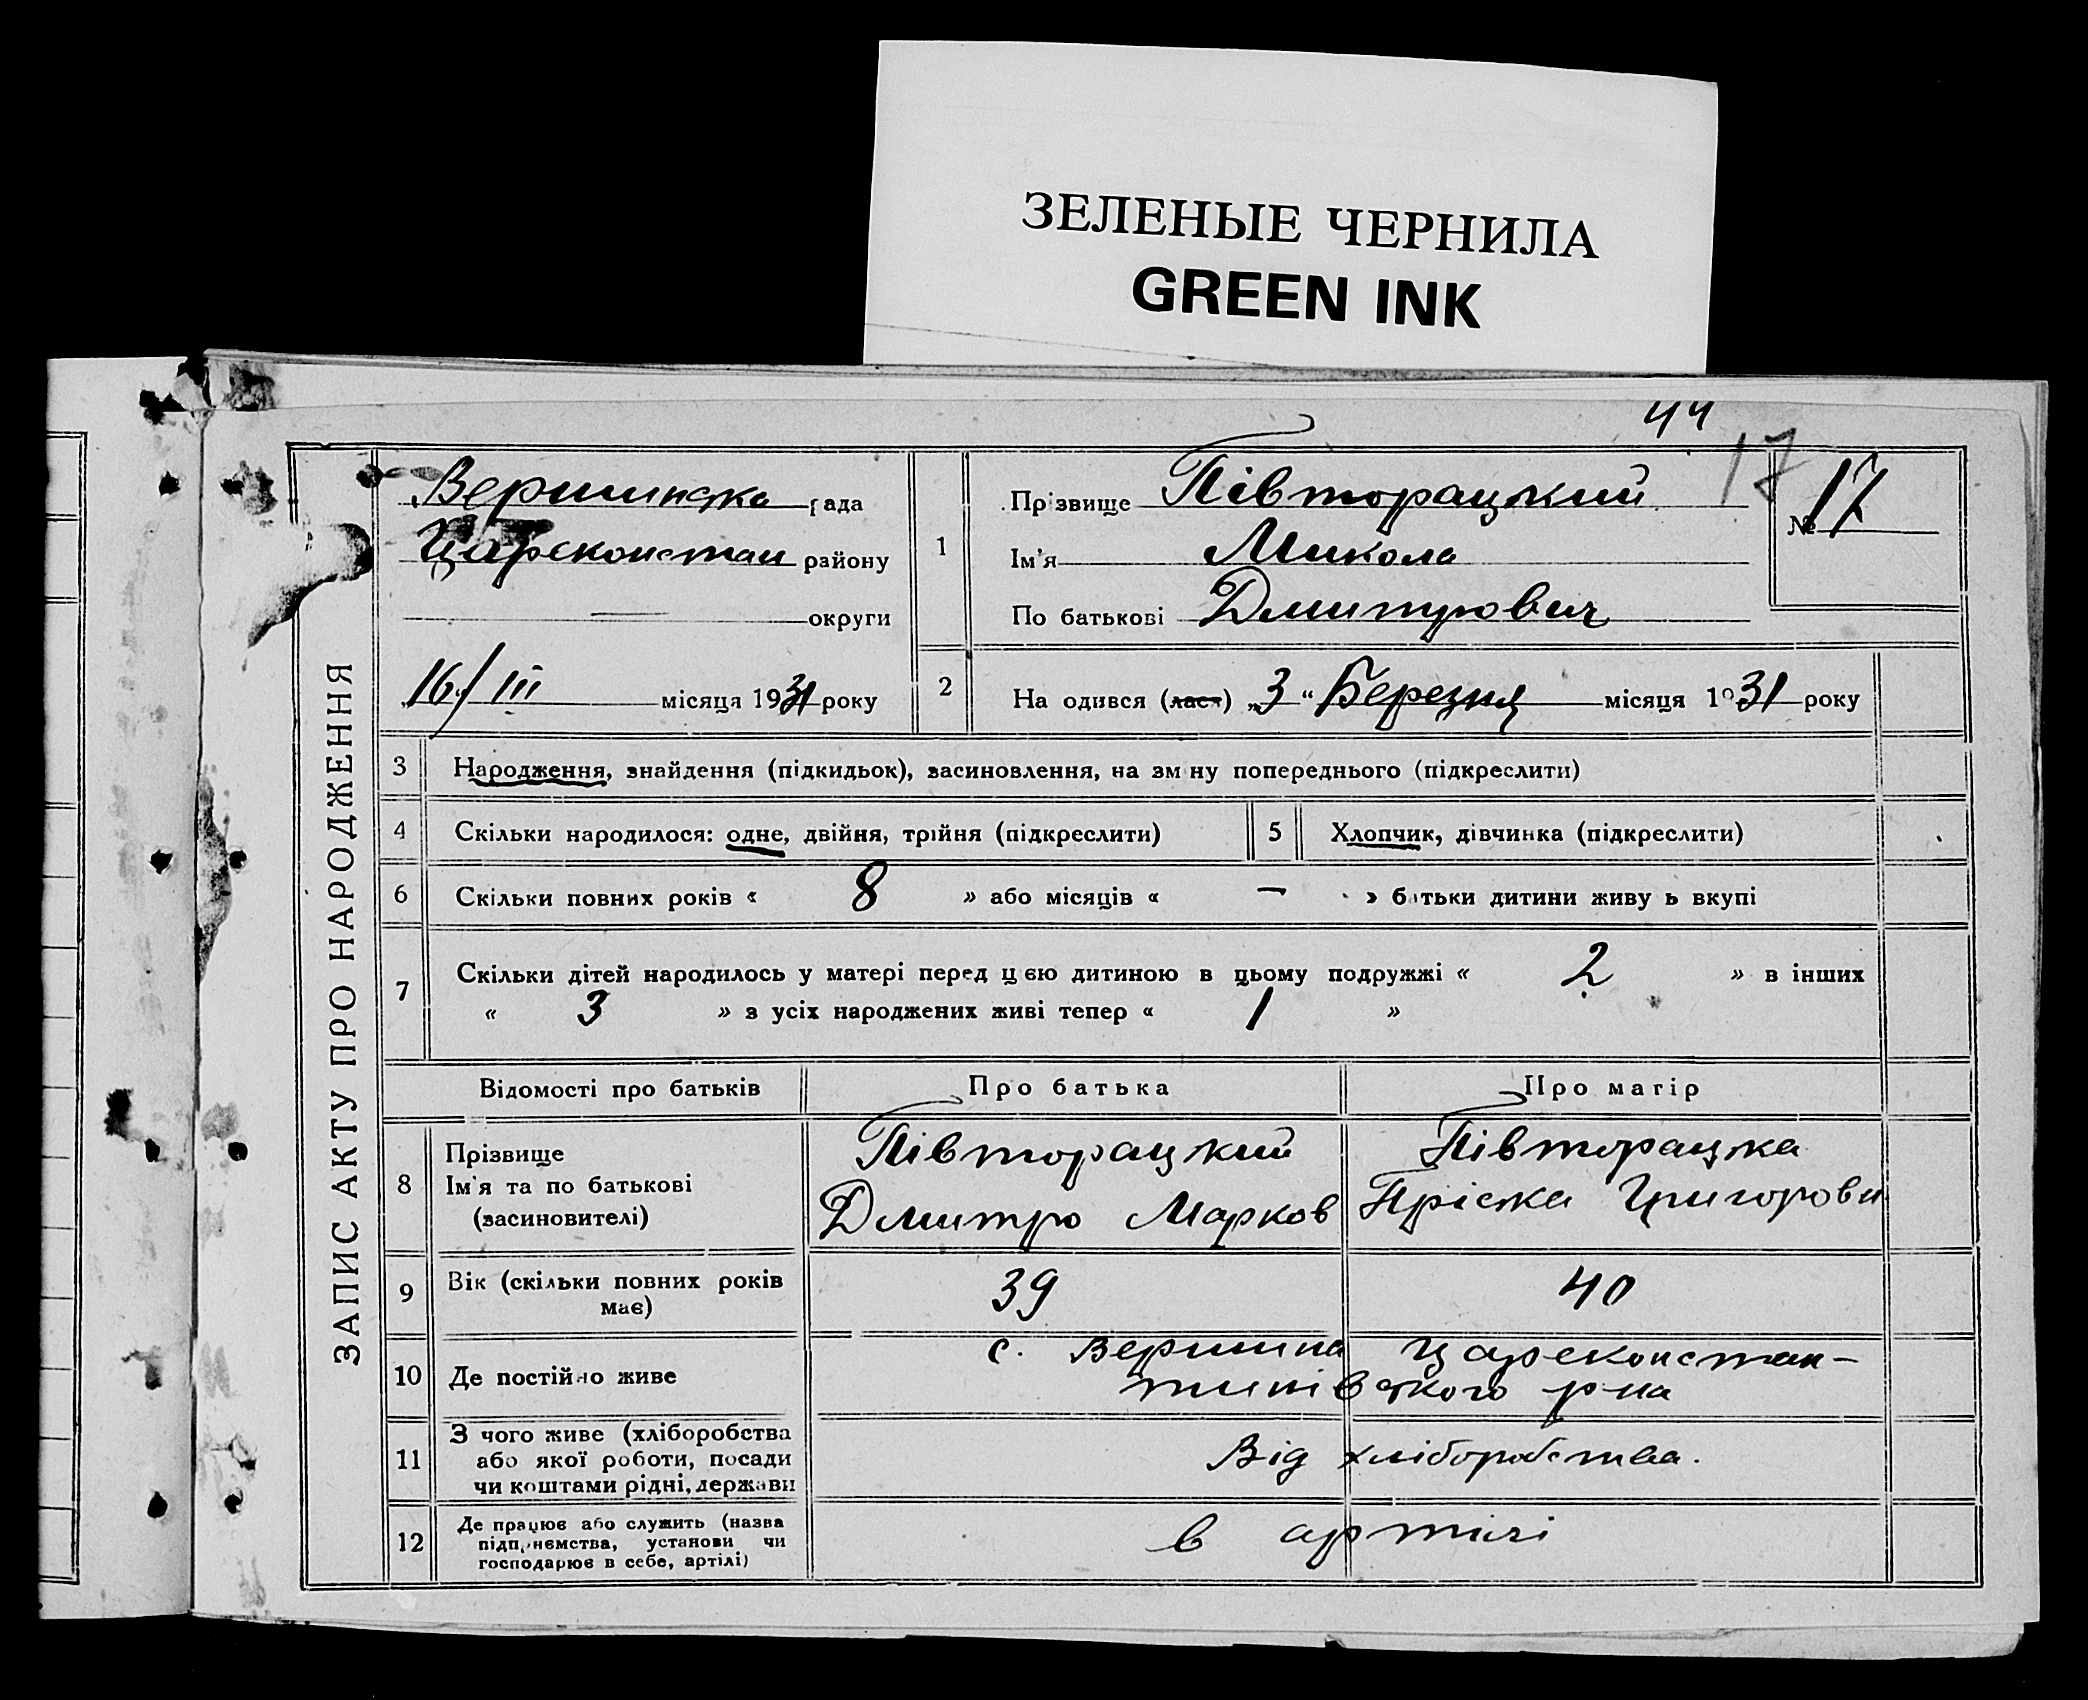 ЗЕЛЕНЫЕ ЧЕРНИЛА
GREEN INK
44
17
ЗАПИС АКТУ ПРО НАРОДЖЕННЯ
Вершинська рада
Царєконстан району
— округи
16/III місяця 1931 року
1
Прізвище Півторацкий
Ім'я Микола
По батькові Дмитрович
№ 17
2 На одився (лася) „3" Березня місяця 1931 року
3 Народження, знайдення (підкидьок), засиновлення, на зм ну попереднього (підкреслити)
4 Скільки народилося: одне, двійня, трійня (підкреслити) 5 Хлопчик, дівчинка (підкреслити)
6 Скільки повних років « 8 » або місяців « — » батьки дитини живу ь вкупі
7 Скільки дітей народилось у матері перед цею дитиною в цьому подружжі « 2 » в інших
« 3 » з усіх народжених живі тепер « 1 »
Відомості про батьків Про батька Про матір
8 Прізвище
Ім'я та по батькові
(засиновителі)
Півторацкий
Дмитро Марков
Півторацка
Пріська Григорови
9 Вік (скільки повних років
має)
39 40
10 Де постійно живе
с. Вершина Царєконстан-
тинівського р-на
11 З чого живе (хліборобства
або якої роботи, посади
чи коштами рідні, держави
Від хліборобства.
12 Де працює або служить (назва
підприємства, установи чи
господарює в себе, артілі)
в артілі